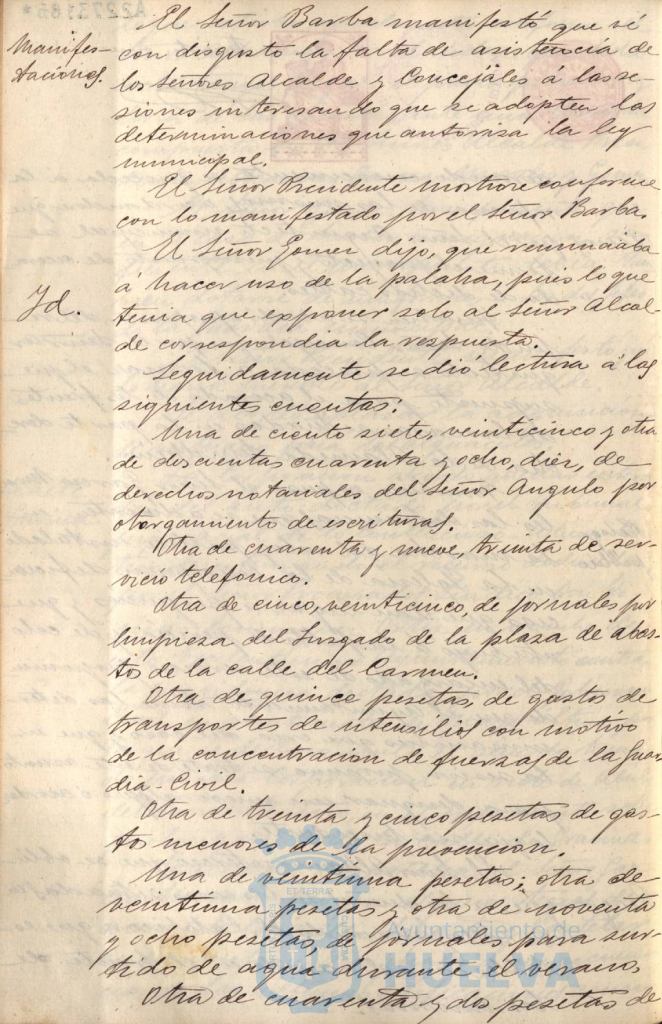 A2273165*
Manifes-
taciónes.
El Señor Barba manifestó que vé
con disgusto la falta de asistencia de
los Señores Alcalde y Concejáles á las se-
siones interesando que se adopten las
determinaciones que autoriza la ley
municipal.
El Señor Presidente mostrose conforme
con lo manifestado por el Señor Barba.
Id.
El Señor Gomez dijo, que renunciaba
á hacer uso de la palabra, pues lo que
tenia que exponer solo al Señor Alcal-
de correspondia la respuesta.
Seguidamente se dió lectura á las
siguientes cuentas:
Una de ciento siete, veinticinco y otra
de doscientas cuarenta y ocho, diez, de
derechos notariales del Señor Angulo por
otorgamiento de escrituras.
Otra de cuarenta y nueve, treinta de ser-
vicio telefonico.
Otra de cinco, veinticinco, de jornales por
limpieza del Juzgado de la plaza de abas-
tos de la calle del Carmen.
Otra de quince pesetas, de gastos de
transportes de utensilios con motivo
de la concentracion de fuerzas de la Guar-
dia-Civil.
Otra de treinta y cinco pesetas de gas-
tos menores de la prevencion.
Una de veintiuna pesetas; otra de
veintiuna pesetas y otra de noventa
y ocho pesetas, de jornales para sur-
tido de agua durante el verano.
Otra de cuarenta y dos pesetas de
Ayuntamiento de
HUELVA